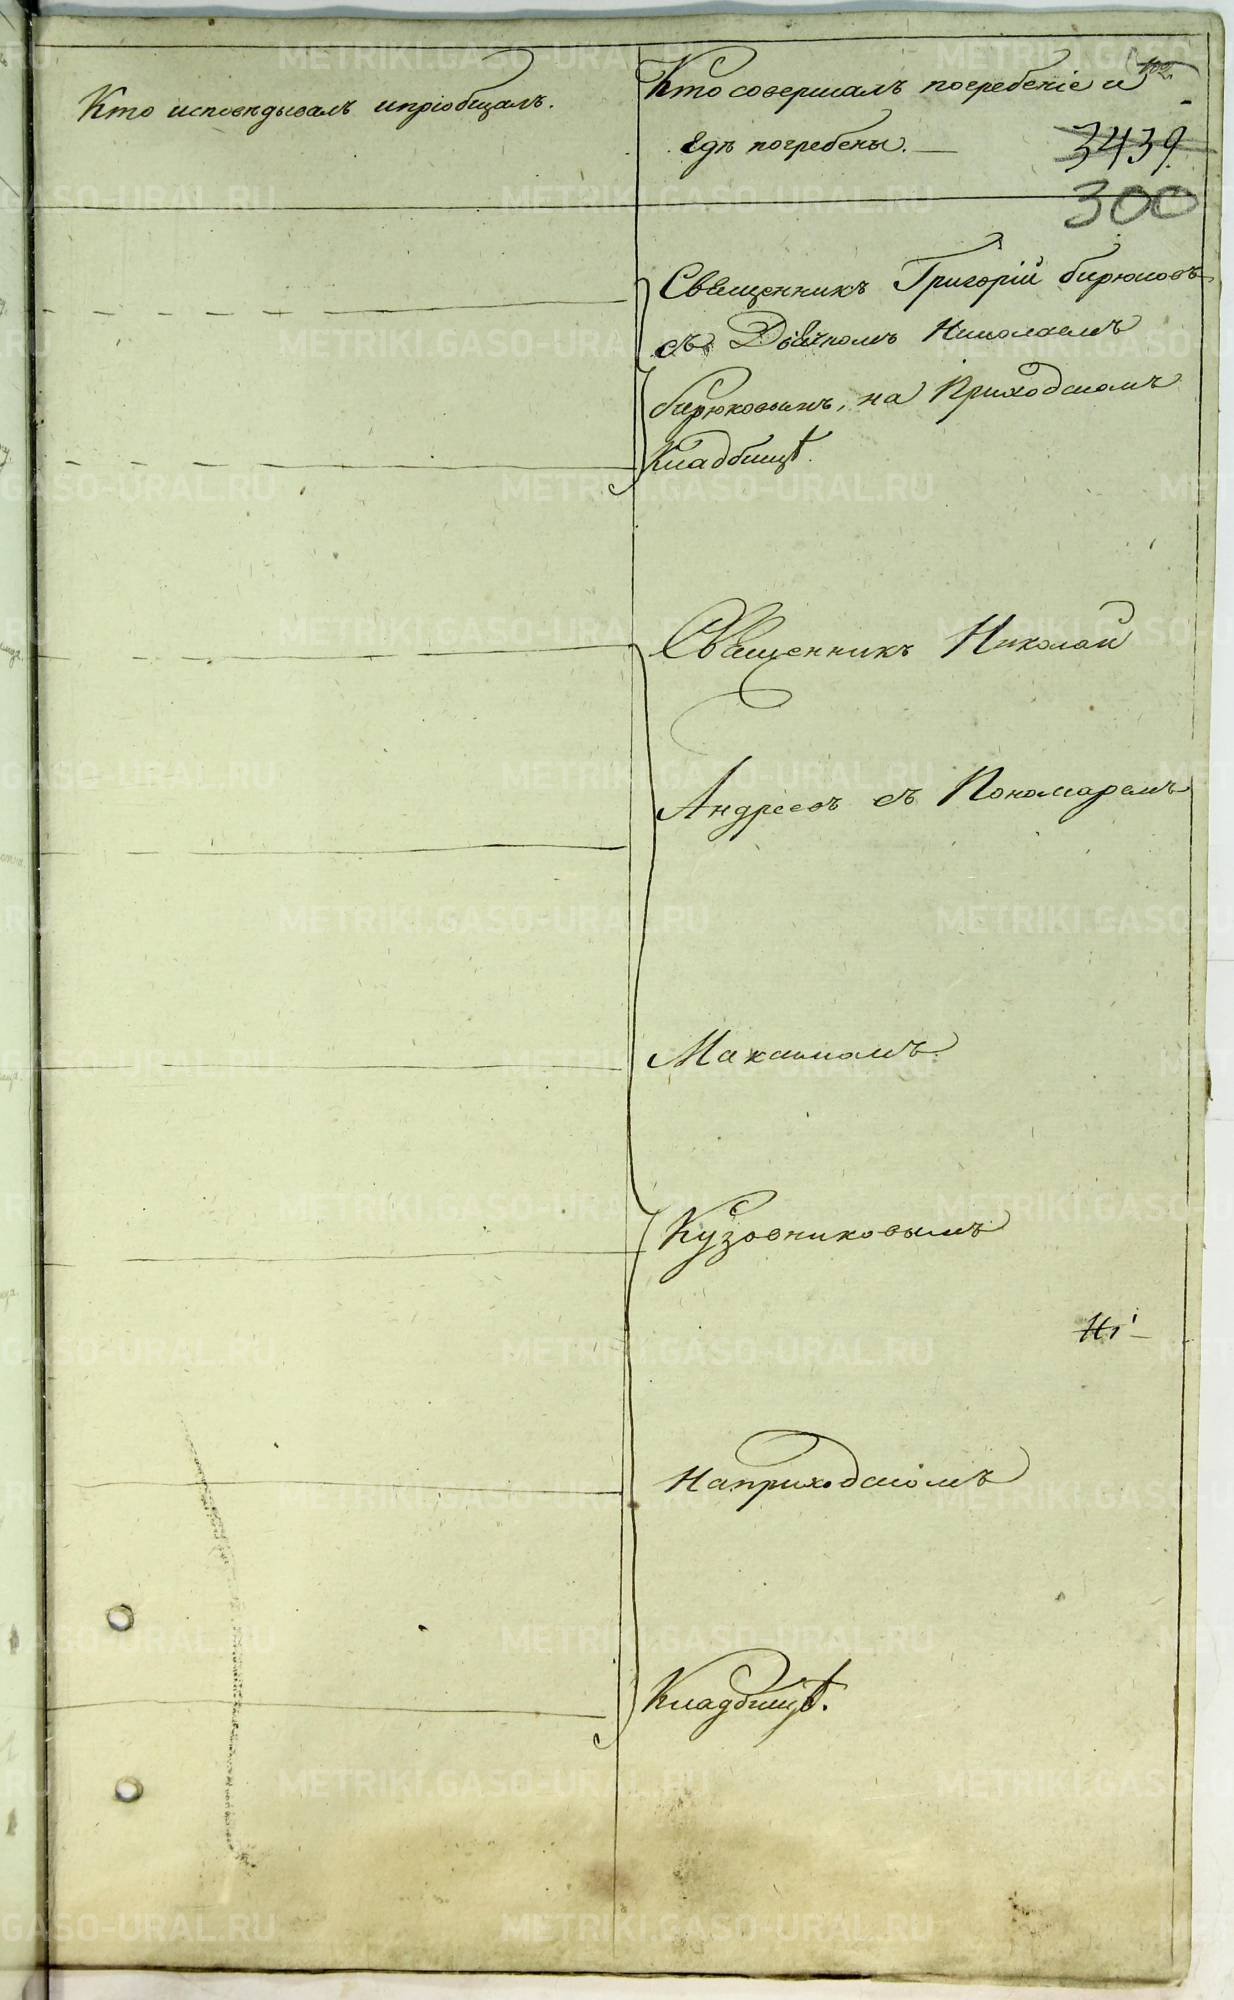 Кто исповѣдывалъ и пріобщалъ.
Кто совершалъ погребеніе и
гдѣ погребены.
3439
300
Священникъ Григорій Бирюковъ
съ Дьячкомъ Николаемъ
Бирюковымъ, на Приходскомъ
Кладбищѣ.
Священникъ Николай
Андреевъ съ Пономаремъ
Максимомъ
Кузовниковымъ
На приходскомъ
Кладбищѣ.
METRIKI.GASO-URAL.RU